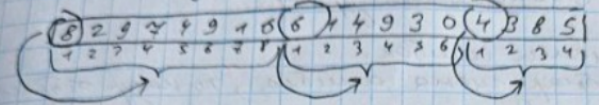 8 2 9 7 4 9 1 6 6 1 4 9 3 0 4 3 8 5
1 2 3 4 5 6 7 8 1 2 3 4 5 6 1 2 3 4